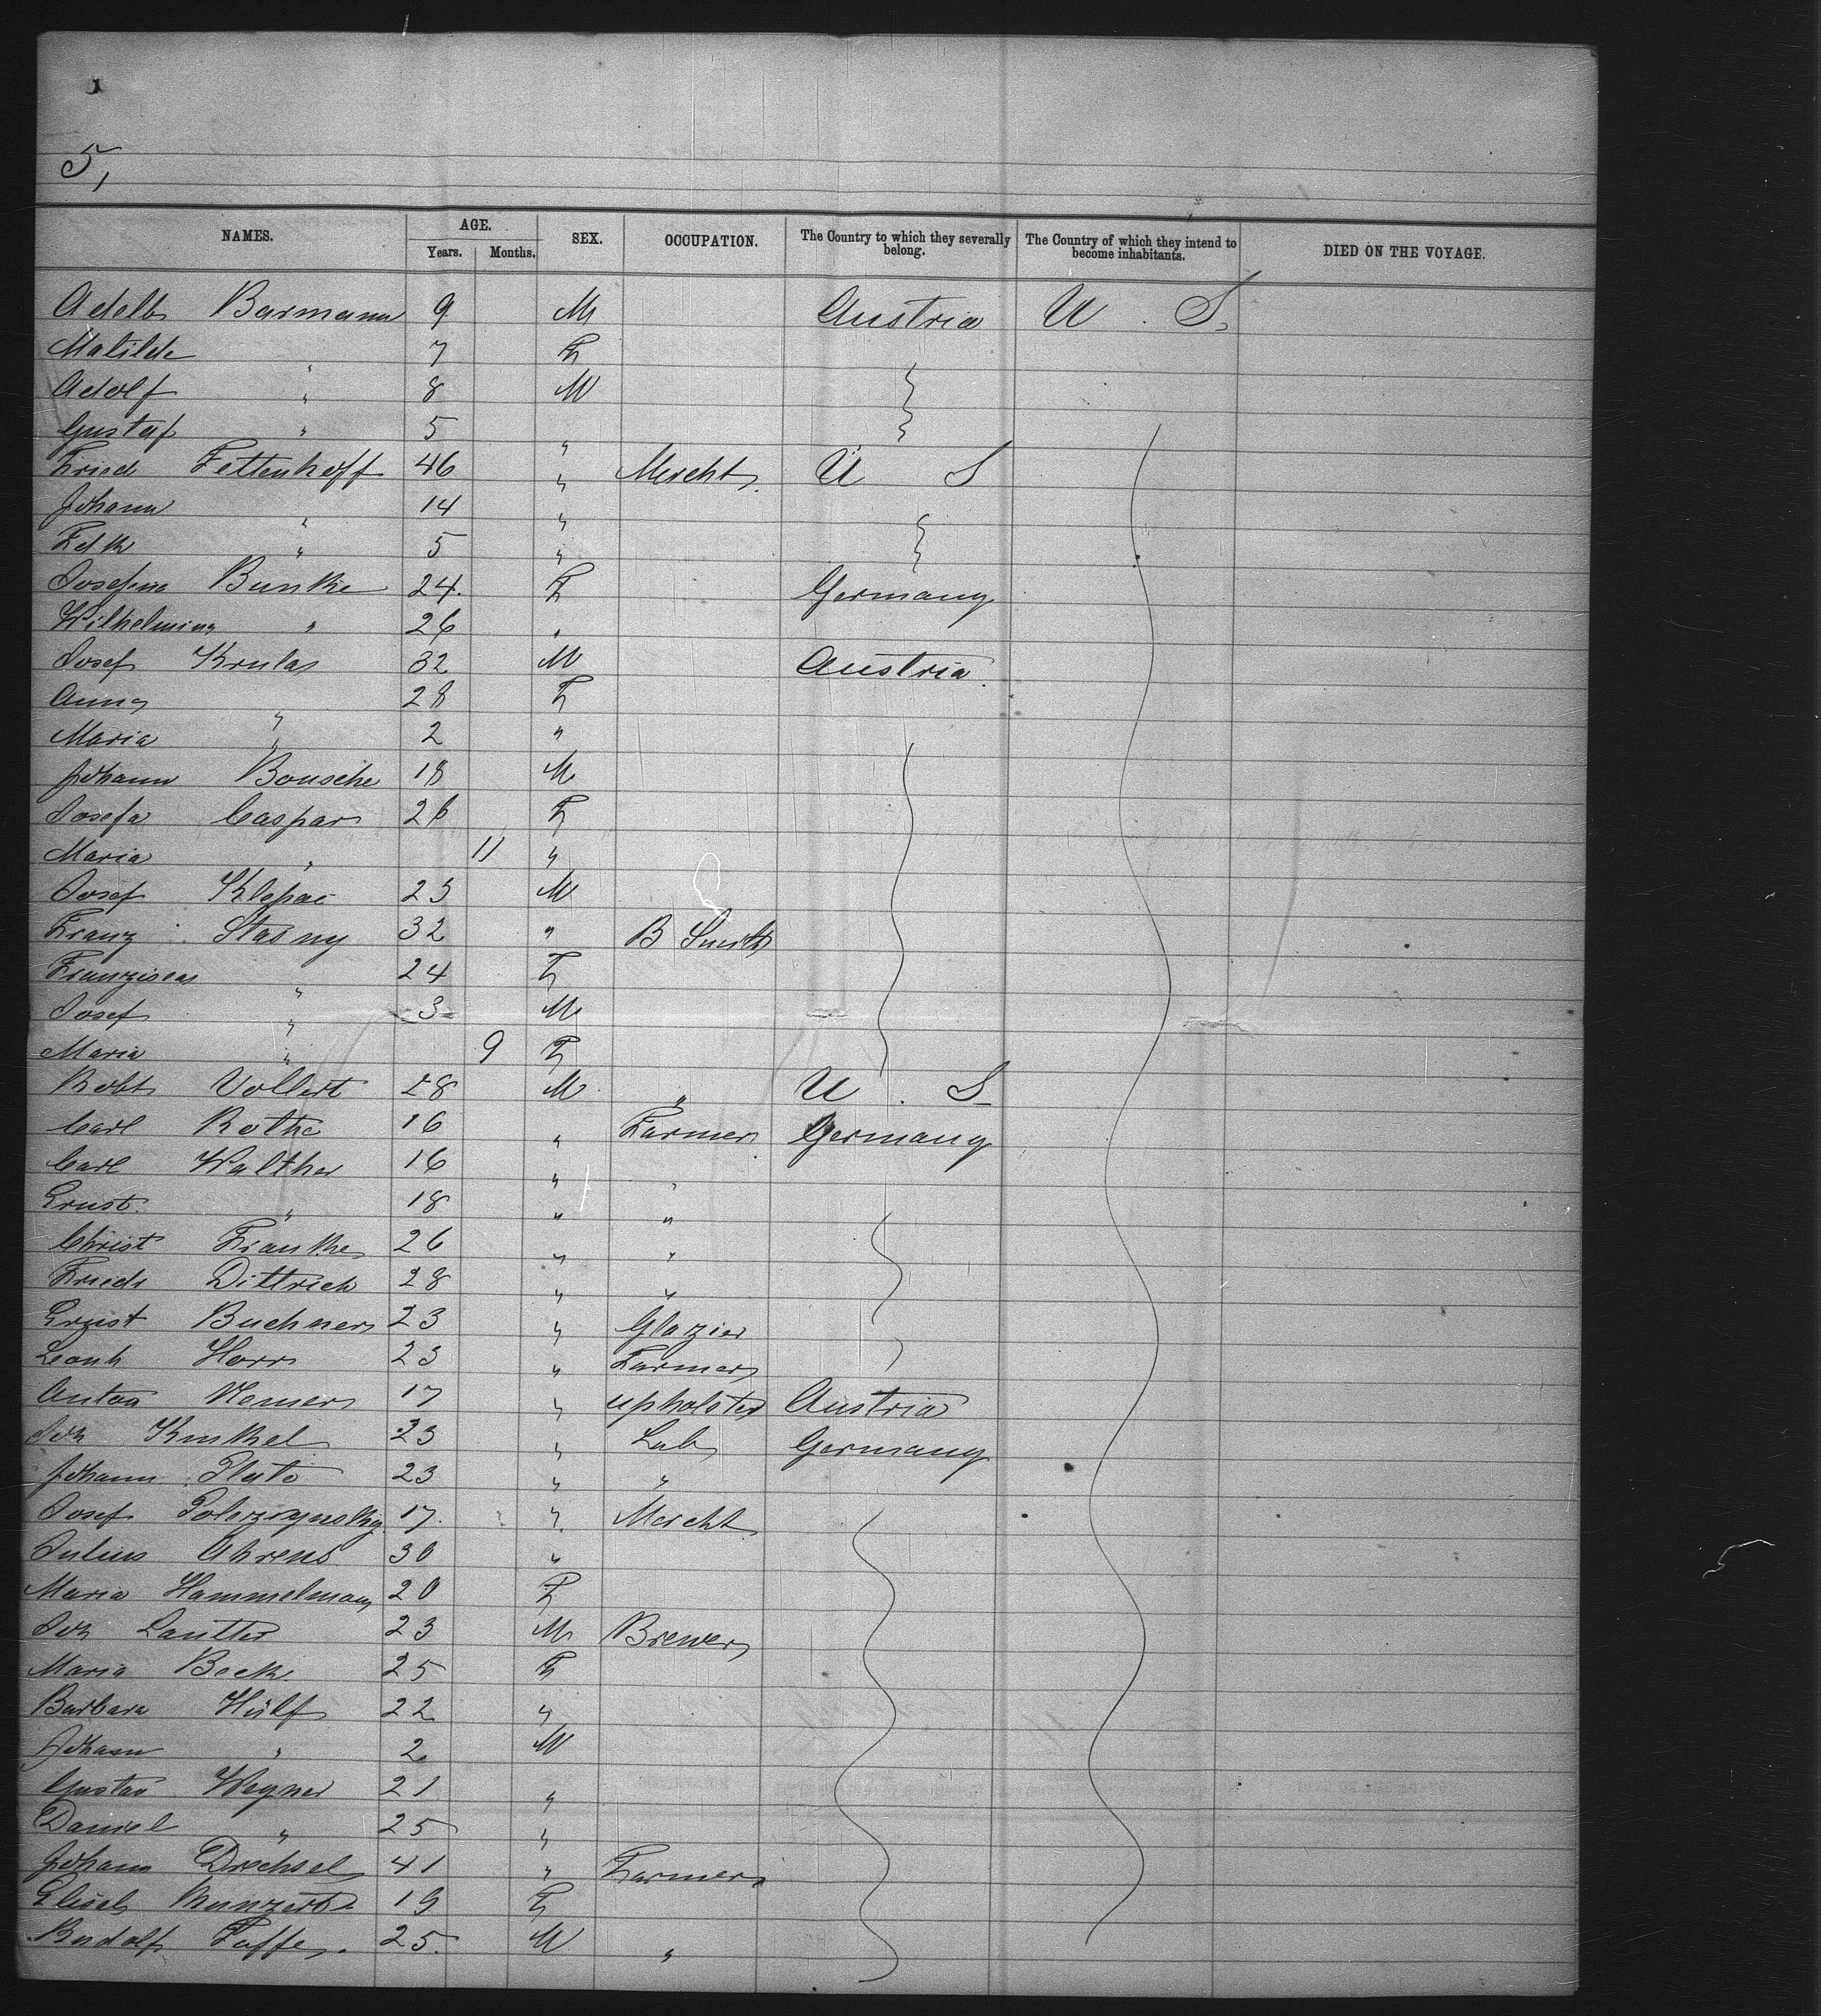 5,
NAMES. AGE. SEX. OCCUPATION. The Country to which they severally belong. The Country of which they intend to become inhabitants. DIED ON THE VOYAGE.
Years. Months.
Adelb Barmann 9 M Austria U. S.
Matilde " 7 F
Adolf " 8 M
Gustaf " 5 "
Fried Fettenhoff 46 " Mercht U S
Johann " 14 "
" 5 "
Josefina Bunke 24. F Germany
Wilhelmina " 26 "
Josef Krula 32 M Austria.
Anna " 28 F
Maria " 2 "
Johann Bousche 18 M
Josefa Caspar 26 F
Maria " 11 "
Josef Klepac 23 M
Franz Stasny 32 " B Smith
Franzisca " 24 F
Josef " 3 M
Maria " 9 F
Robt Vollert 28 M " U. S
Carl Rothe 16 " Farmer Germany
Carl Walther 16 " "
Ernst " 18 " "
Christ Franke 26 " "
Friedr Dittrich 28 " "
Ernst Buchner 23 " Glazier
Leonh Horr 23 " Farmer
Anton Nemer 17 " upholster Austria
Joh Kunkel 23 " Lab Germany
Johann Pluto 23 " "
Josef 17. " Mercht
Julius Ahrens 30 "
Maria Hammelmann 20 F
Joh Lautter 23 M Brewer
Maria Beck 25 F
Barbara Hülf 22 "
Johann " 2 M
Gustav Wegner 21 "
Daniel " 25 "
Johann Drechsel 41 " Farmer
Elisab Munzert 19 F
Rudolf Faffe. 25. M "
5